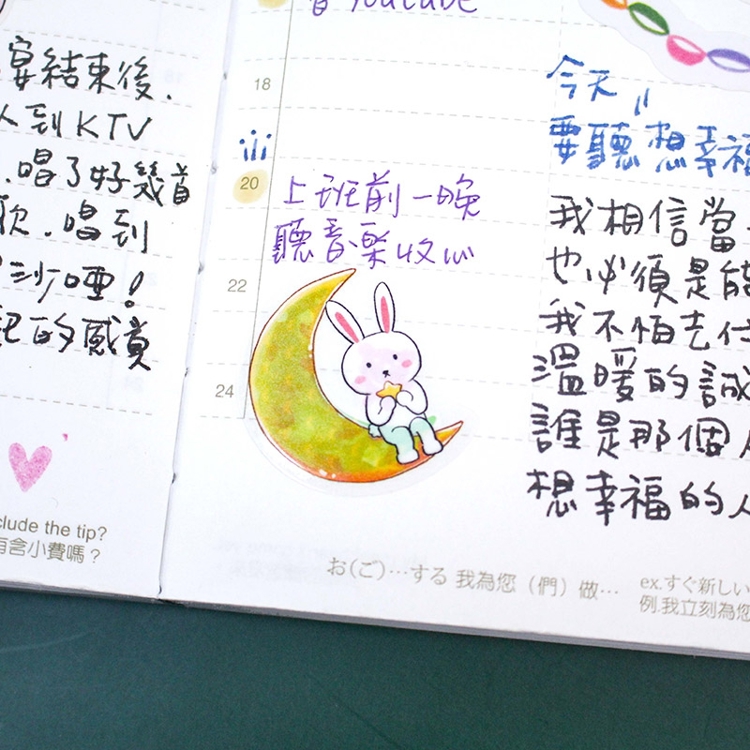 宴結束後.
人到KTV
.唱了好幾首
歌.唱到
沙啞!
的感覺
clude the tip?
有含小費嗎?
看Youtube
18
20
22
24
上班前一晚
聽音樂收心
今天
要聽想幸福
我相信當
也必須是能
我不怕去付
溫暖的誠
誰是那個
想幸福的人
お(ご)…する 我為您(們)做…
ex.すぐ新しい
例.我立刻為您